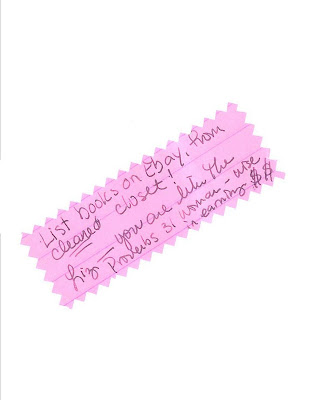 List books on Ebay, from
cleaned closet!
Liz — you are like the
Proverbs 31 woman - wise
in earning $$